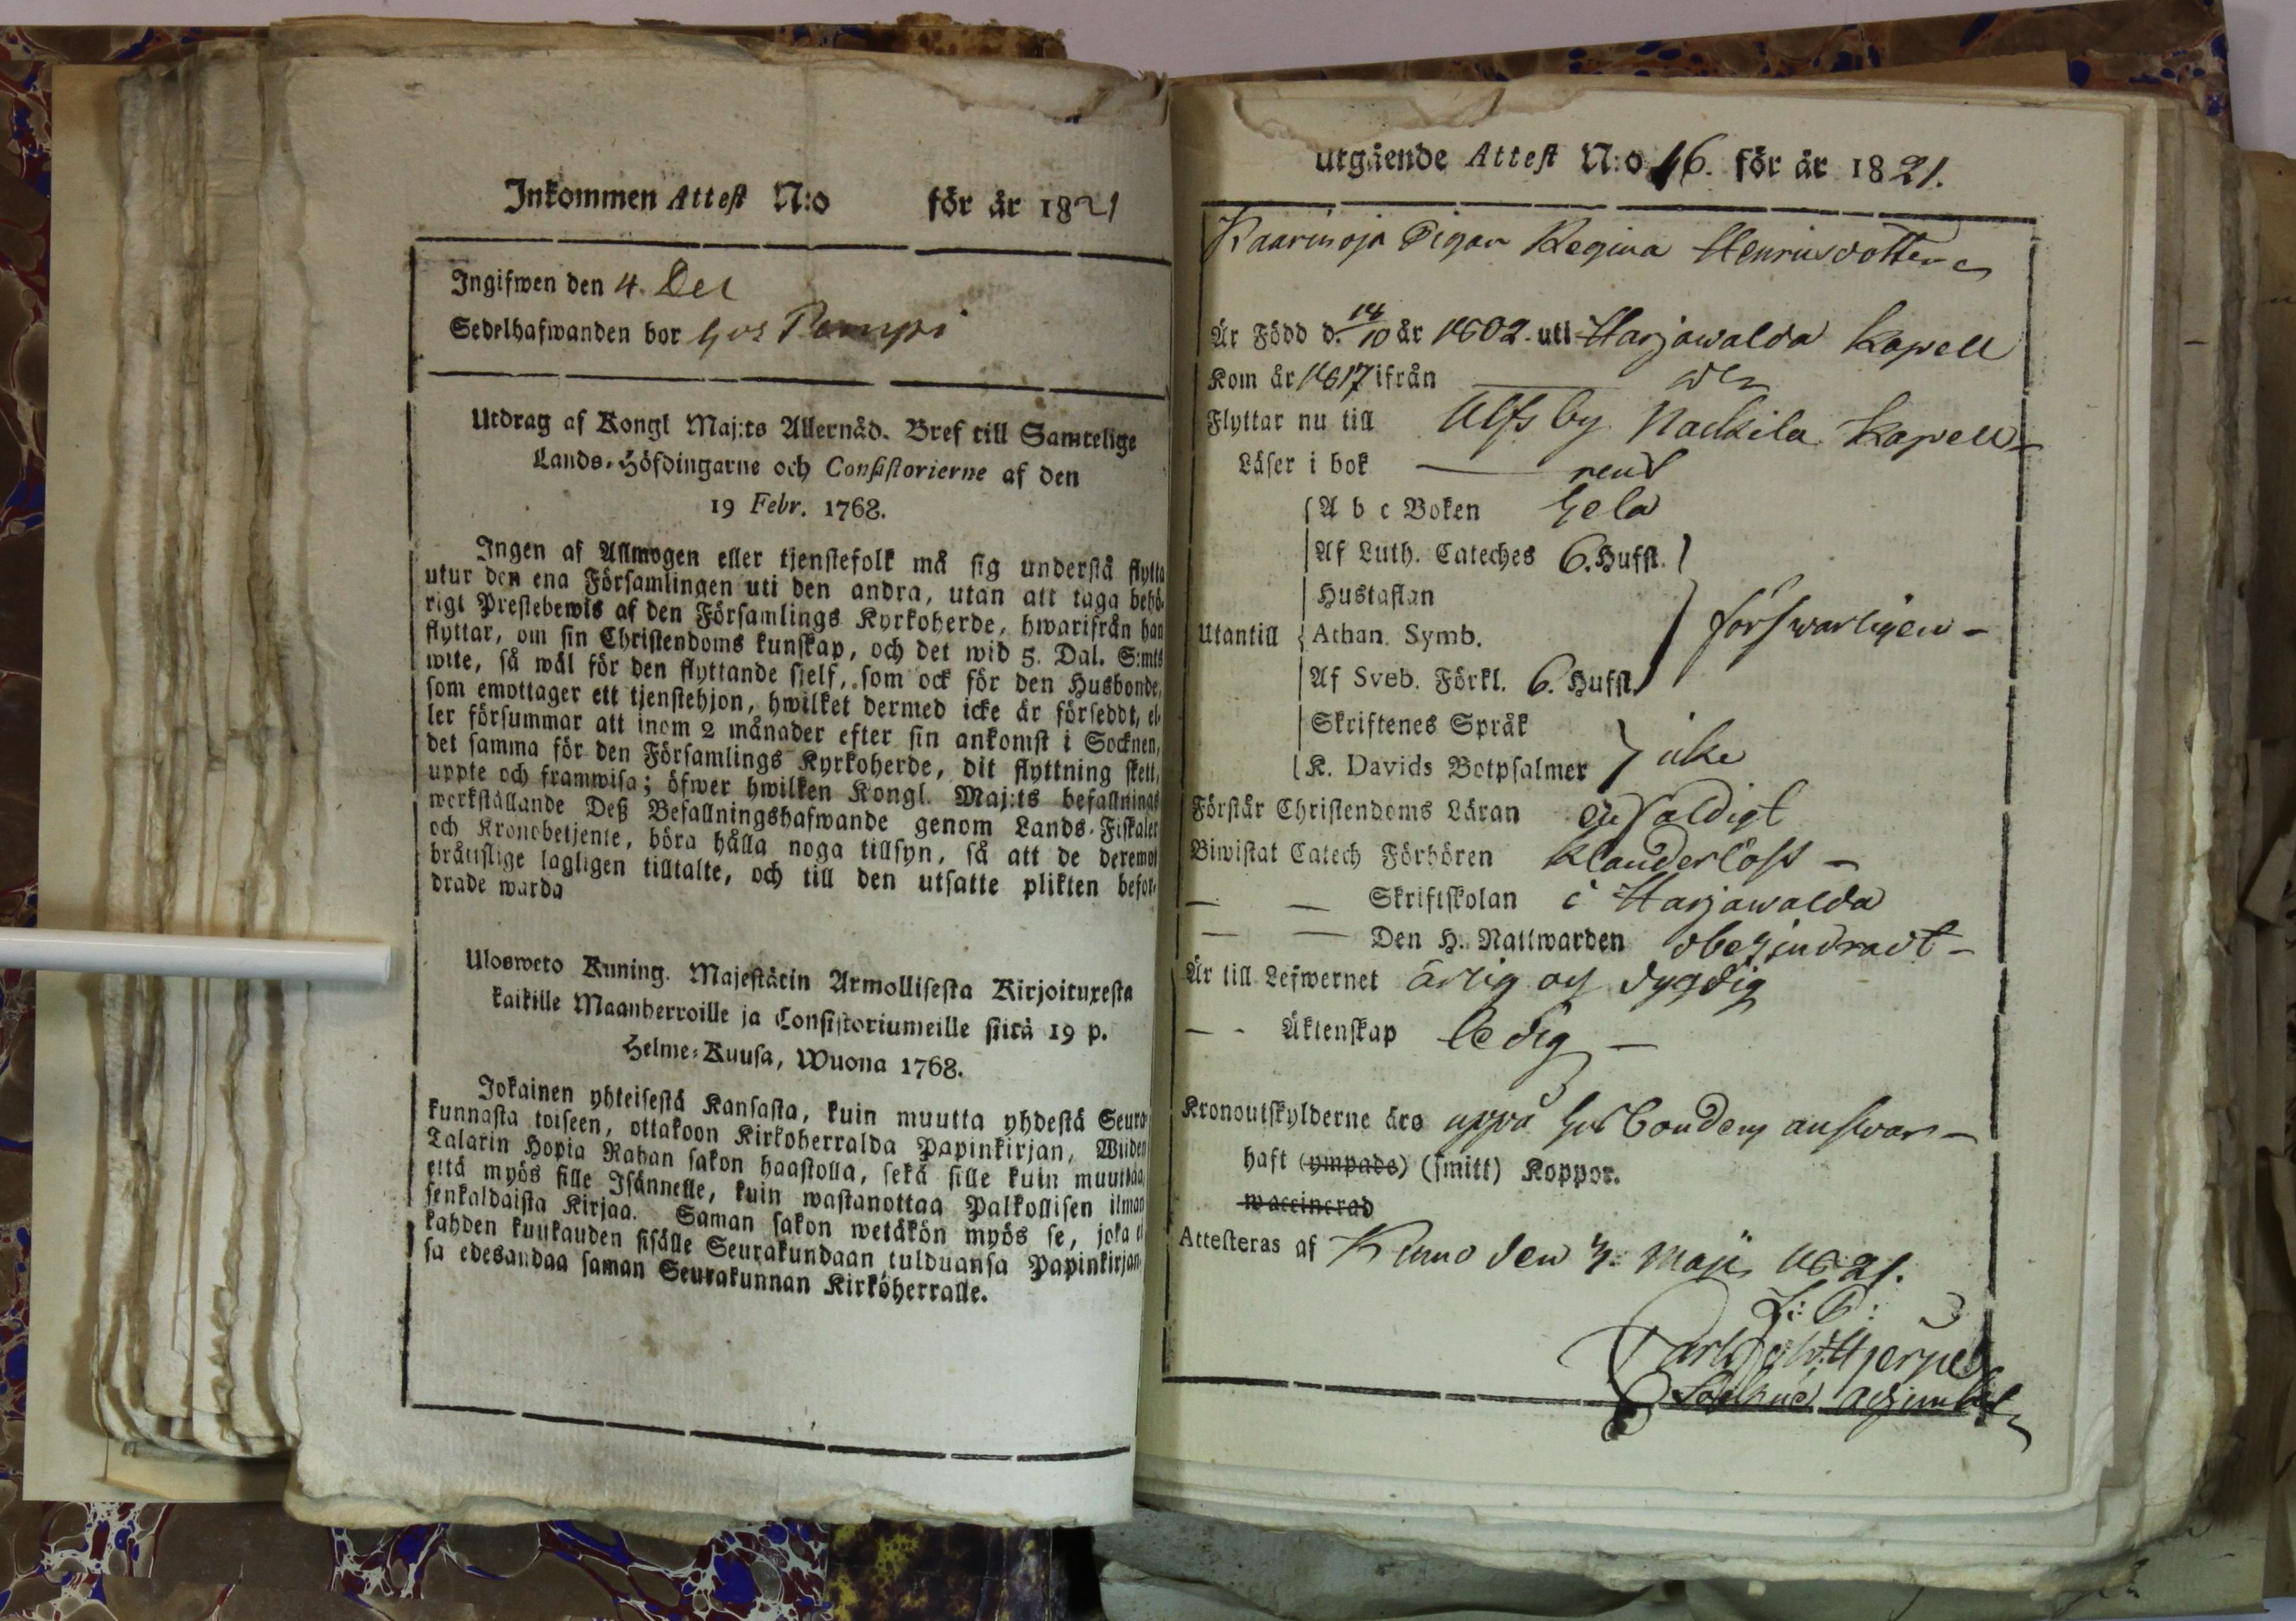 Inkommen Attest N:o för år 1821
Ingifwen den 4. Dec
Sedelhafwanden bor hos Pomppi
Utdrag af Kongl Maj:ts Allernåd. Bref till Samtelige
Lands-Höfdingarne och Consistorierne af den
19 Febr. 1768.
Ingen af Allmogen eller tjenstefolk må sig understå flytta
utur den ena Församlingen uti den andra, utan att taga behö-
rigt Prestebewis af den Församlings Kyrkoherde, hwarifrån han
flyttar, om sin Christendoms kunskap, och det wid 5. Dal. S:mts
wite, så wäl för den flyttande sjelf, som ock för den Husbonde,
som emottager ett tjenstehjon, hwilket dermed icke är försedt, el-
ler försummar att inom 2 månader efter sin ankomst i Socknen,
det samma för den Församlings Kyrkoherde, dit flyttning skett,
uppte och framwisa; öfwer hwilken Kongl. Maj:ts befallnings
werkställande Deß Befallningshafwande genom Lands-Fiskaler
och Kronobetjente, böra hålla noga tillsyn, så att de deremot
bråttslige lagligen tilltalte, och till den utsatte plikten befor-
drade warda
Ulosweto Kuning. Majestätin Armollisesta Kirjoituxesta
kaikille Maanherroille ja Consistoriumeille siitä 19 p.
Helme-Kuusa, Wuona 1768.
Jokainen yhteisestä Kansasta, kuin muutta yhdestä Seura-
kunnasta toiseen, ottakoon Kirkoherralda Papinkirjan, Wiiden
Talarin Hopia Rahan sakon haastolla, sekä sille kuin muuttaa,
että myös sille Isännelle, kuin wastanottaa Palkollisen ilman
senkaldaista Kirjaa. Saman sakon wetäkön myös se, joka ei
kahden kuukauden sisälle Seurakundaan tulduansa Papinkirjan-
sa edesandaa saman Seurakunnan Kirköherralle.
utgående Attest N:o 16. för år 1821.
Kaarinoja Pigan Regina Henricsdotter
Är Född d. 14/10 år 1802. uti Harjawalda Kapell
Kom år 1817 ifrån
Flyttar nu till Ulfsby Nackila Kapell
Läser i bok rent
A b c Boken hela
Af Luth. Cateches 6. Hufst.
Hustaflan
Utantill Athan. Symb. förswarligen
Af Sveb. Förkl. 6. Hufst.
Skriftenes Språk
K. Davids Botpsalmer icke
Förstår Christendoms Läran enfaldigt
Biwistat Catech Förhören klanderlöst
— — Skriftskolan i Harjawalda
— — Den H. Nattwarden obehindradt
Är till Lefwernet ärlig och dygdig
— - Äktenskap ledig
Kronoutskylderne äro uppå husbondens answar
haft (ympade) (smitt) Koppor.
waccinerad
Attesteras af Kumo den 3. Maji 1821.